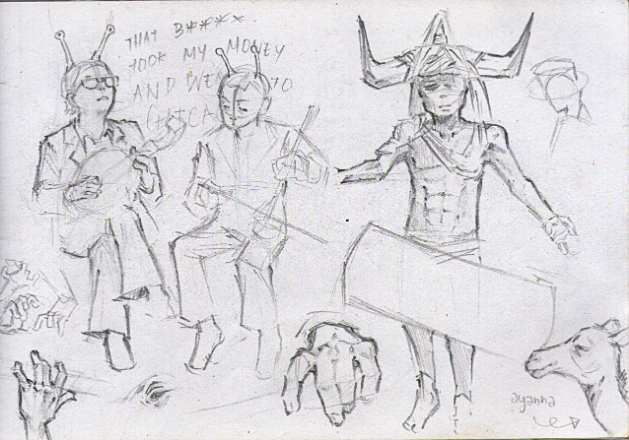 THAT B****.
TOOK MY MONEY
AND WENT TO
CHICA
ayanna